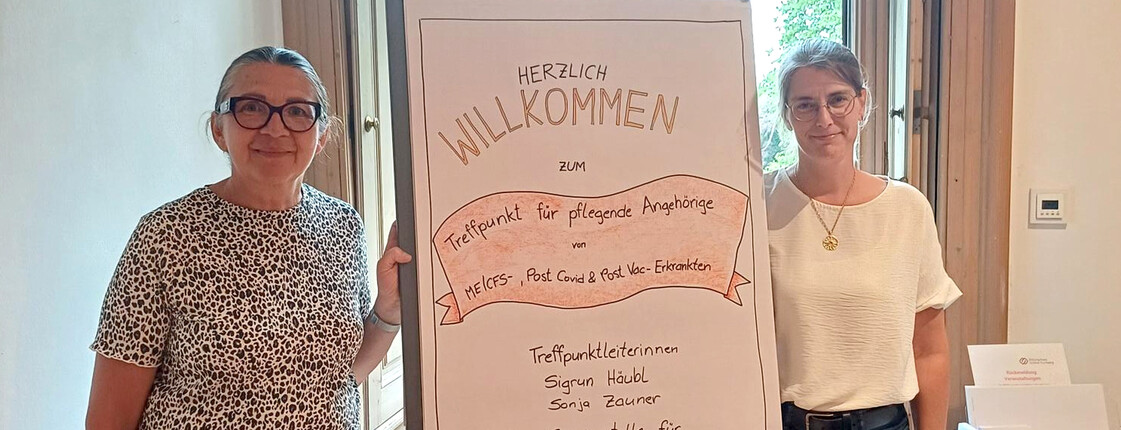 HERZLICH
WILLKOMMEN
ZUM
Treffpunkt für pflegende Angehörige
von
ME/CFS-, Post Covid & Post Vac-Erkrankten
Treffpunktleiterinnen
Sigrun Häubl
Sonja Zauner
für
Rückmeldung
Veranstaltungen